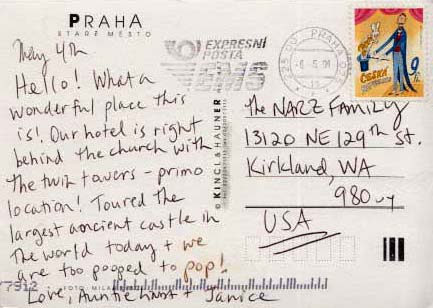 PRAHA
STARÉ MĚSTO
May 4th
Hello! What a
wonderful place this
is! Our hotel is right
behind the church with
the twin towers - primo
location! Toured the
largest ancient castle in
the world today + we
are too pooped to pop!
Love, Auntie + Janice
EXPRESNÍ
POŠTA
EMS
PRAHA 025
-6.5.01
ČESKÁ
9
© KINCL & HAUNER
The NARZ FAMILY
13120 NE 129th St.
Kirkland, WA
980
USA
77912
FOTO